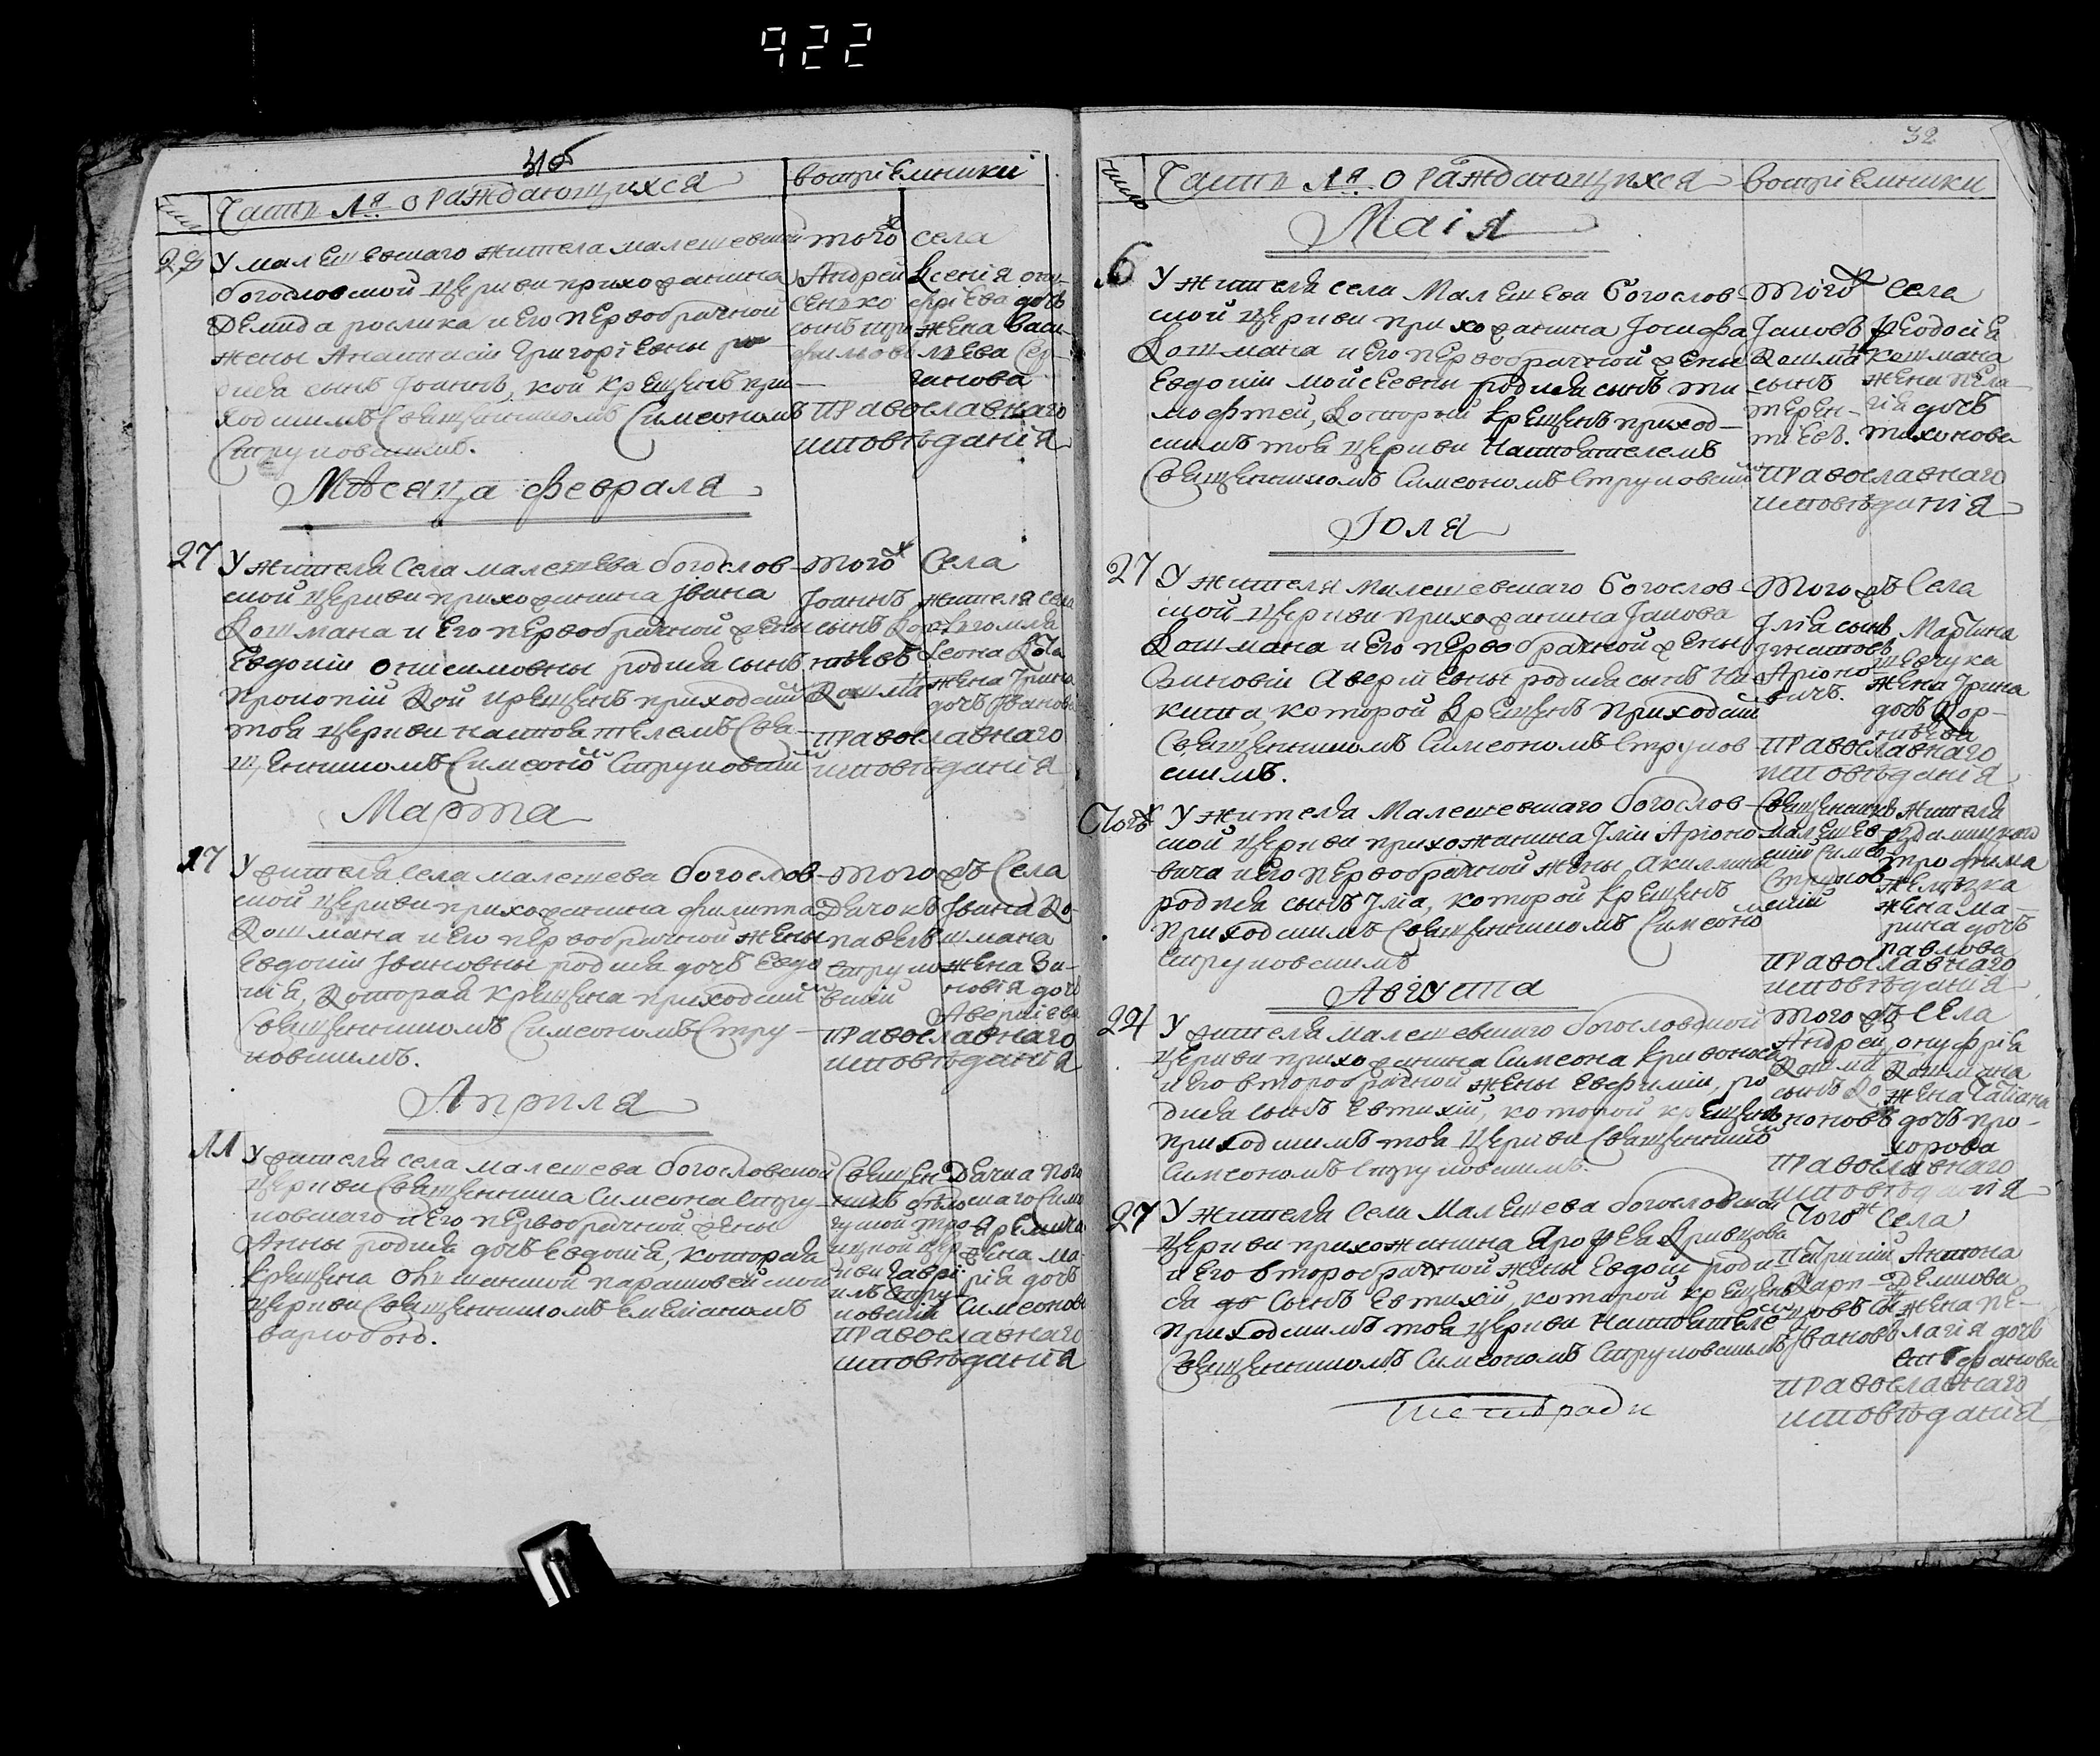 922
31об
Части 1я о раждающихся
восприемники
29
У малешевскаго жителя малешевской
богословской церкви прихожанина
Демида рослика и его первобрачной
жены Анастасіи Григоріевны ро
дися сынъ Іоаннъ, кой крещенъ при-
ходскимъ Священникомъ Симеономъ
Струковскимъ.
того ж села
Андрей
сенько
сынъ три
фимовъ
Ксенія ону-
фріева дочь
жена васи-
ліева Сер-
гинова
православнаго
исповѣданія
Мѣсяца февраля
27
У жителя Села малешева богослов-
ской церкви прихожанина Івана
Кошмана и его первобрачной жены
Евдокіи онисимовны родися сынъ
Прокопій кой крещенъ приходским
тоя церкви настоятелемъ Свя-
щенникомъ Симеоном Струковским
того ж Села
Іоаннъ
сынъ Кор-
нѣевъ
Кошма
жителя села
Леона
жена Ірина
дочь Іванова
православнаго
исповѣданія
Марта
17
У жителя Села малешева богослов-
ской церкви прихожанина филиппа
Кошмана и его первобрачной жены
Евдокіи Івановны родися дочь Евдо
кія, Которая крещена приходским
Священникомъ Симеономъ Стру-
ковскимъ.
того жъ Села
Дячокъ
павелъ
Струко
вскій
Івана Ко-
шмана
жена Зи-
новія дочь
Аверкіева
православнаго
исповѣданія
Апрѣля
11
У жителя села малешева богословской
церкви Священника Симеона Стру-
ковскаго и его первобрачной жены
Анны родися дочь Евдокія, которая
крещена параскевейской
церкви Священникомъ Емеліаномъ
Священ
никъ
гуской тро
ицкой цер
кви Гаврі
илъ Стру-
ковскій
Дячка
скаго Симе
жена Ма-
рія дочь
Симеонова
православнаго
исповѣданія
32
число
Части 1я о раждающихся
восприемники
Маія
6
У жителя села Малешева Богослов-
ской церкви прихожанина Іосифа
Кошмана и его первобрачной жены
Евдокіи мойсеевны родися сынъ ти
мофтей, Который крещенъ приход-
скимъ тоя церкви Настоятелемъ
Священникомъ Симеономъ Струковским
того ж Села
Іаковъ
Кошма
сынъ
терен-
тіевъ.
Феодосія
кошмана
жена пела-
гія дочь
тихонова
православнаго
исповѣданія
Іюля
27
У жителя малешевскаго Богослов-
ской церкви прихожанина Іакова
Кошмана и его первобрачной жены
Зиновіи Аверкіевны родися сынъ Ни
кита, которой Крещенъ приходским
Священникомъ Симеономъ Струков
скимъ.
того жъ Села
Ілія сынъ
Ігнатовъ
Аріоно
вичъ.
Мартина
шевчука
жена Ірина
дочь Кор-
нѣева
православнаго
исповѣданія
Тогож
У жителя Малешевскаго богослов-
ской церкви прихожанина Іліи Аріоно
вича и его первобрачной жены Акилины
родися сынъ Ілія, которой Крещенъ
приходскимъ Священникомъ Симеоно
Струковскимъ
Священникъ
малешев-
скій Симео
Струков
скій
Жителя
трофима
желѣзка
жена ма-
рина дочь
павлова
православнаго
исповѣданія
Августа
24
У жителя малешевскаго богословской
церкви прихожанина Симеона Кривоноса
и его второбрачной жены Евфиміи, ро
дися сынъ Евтихій, которой крещенъ
приходскимъ тоя церкви Священником
Симеономъ Струковскимъ.
того жъ Села
Андрей
Кошма
сынъ Ко-
ноновъ
онуфрія
Кошмана
жена Татіана
дочь про-
хорова
православнаго
исповѣданія
27
У жителя Села Малешева богословской
церкви прихожанина Ярофея Кривцова
и его второбрачной жены Евдокіи роди
ся сынъ Евтихій, которой крещенъ
приходскимъ тоя церкви Настоятеле
Священникомъ Симеономъ Струковскимъ
Того ж Села
Патрикій
Карп-
овъ сы
Івановъ
Антона
Демкова
жена пе-
лагія дочь
Стефанова
православнаго
исповѣданія